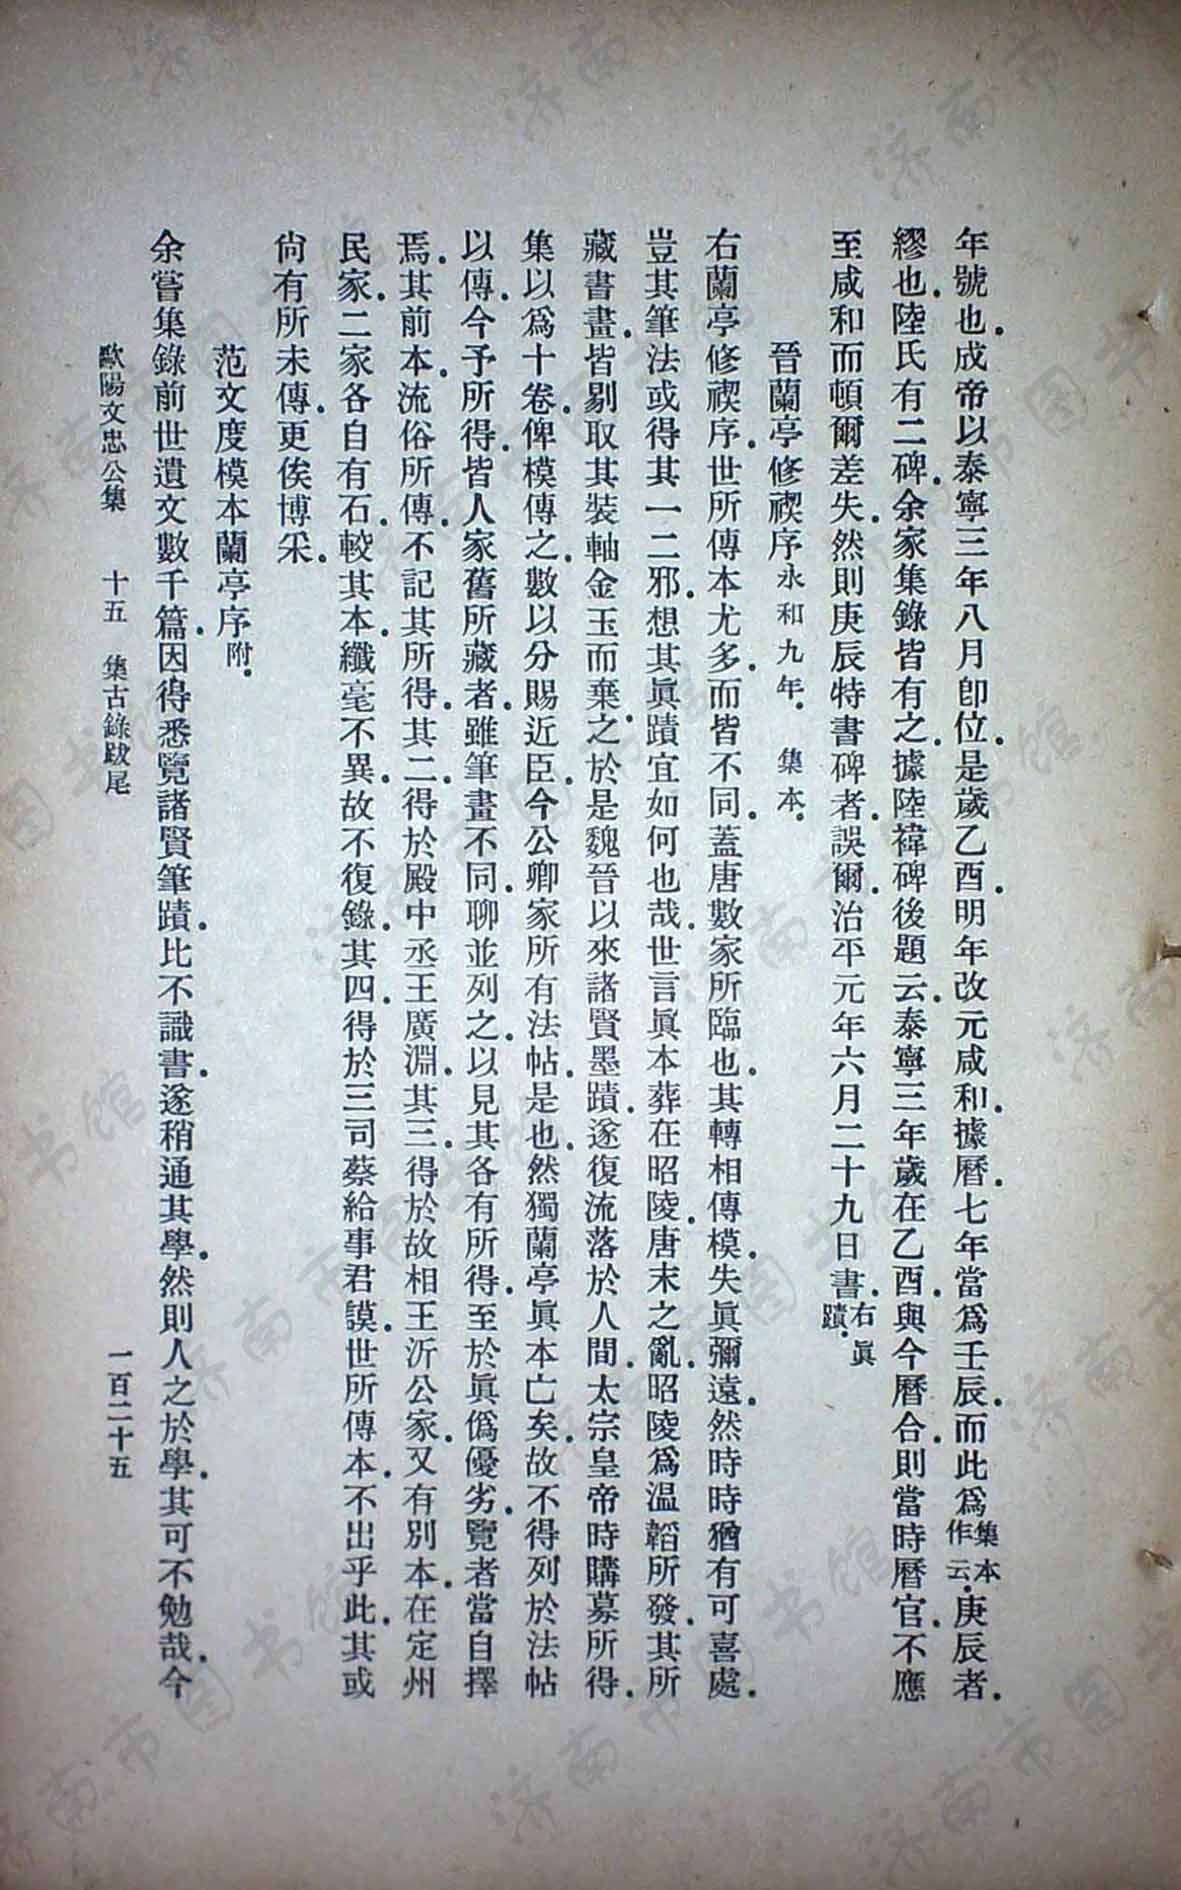 年號也．成帝以泰寧三年八月卽位．是歲乙酉．明年改元咸和．據曆．七年當爲壬辰．而此爲集本作云．庚辰者．
繆也．陸氏有二碑．余家集錄皆有之．據陸褘碑後題云．泰寧三年歲在乙酉．與今曆合．則當時曆官．不應
至咸和而頓爾差失．然則庚辰特書碑者．誤爾．治平元年六月二十九日書．右眞蹟．
晉蘭亭修禊序永和九年．集本．
右蘭亭修禊序．世所傳本尤多．而皆不同．蓋唐數家所臨也．其轉相傳模．失眞彌遠．然時時猶有可喜處．
豈其筆法或得其一二邪．想其眞蹟宜如何也哉．世言眞本葬在昭陵．唐末之亂．昭陵爲溫韜所發．其所
藏書畫．皆剔取其裝軸金玉而棄之．於是魏晉以來諸賢墨蹟．遂復流落於人間．太宗皇帝時購募所得．
集以爲十卷．俾模傳之．數以分賜近臣．今公卿家所有法帖．是也．然獨蘭亭眞本亡矣．故不得列於法帖
以傳．今予所得．皆人家舊所藏者．雖筆畫不同．聊並列之．以見其各有所得．至於眞僞優劣．覽者當自擇
焉．其前本．流俗所傳．不記其所得．其二．得於殿中丞王廣淵．其三．得於故相王沂公家．又有別本．在定州
民家．二家各自有石．較其本．纖毫不異．故不復錄．其四．得於三司蔡給事君謨．世所傳本．不出乎此．其或
尙有所未傳．更俟博采．
范文度模本蘭亭序附．
余嘗集錄前世遺文數千篇．因得悉覽諸賢筆蹟．比不識書．遂稍通其學．然則人之於學．其可不勉哉．今
歐陽文忠公集 十五 集古錄跋尾 一百二十五
济南市图书馆